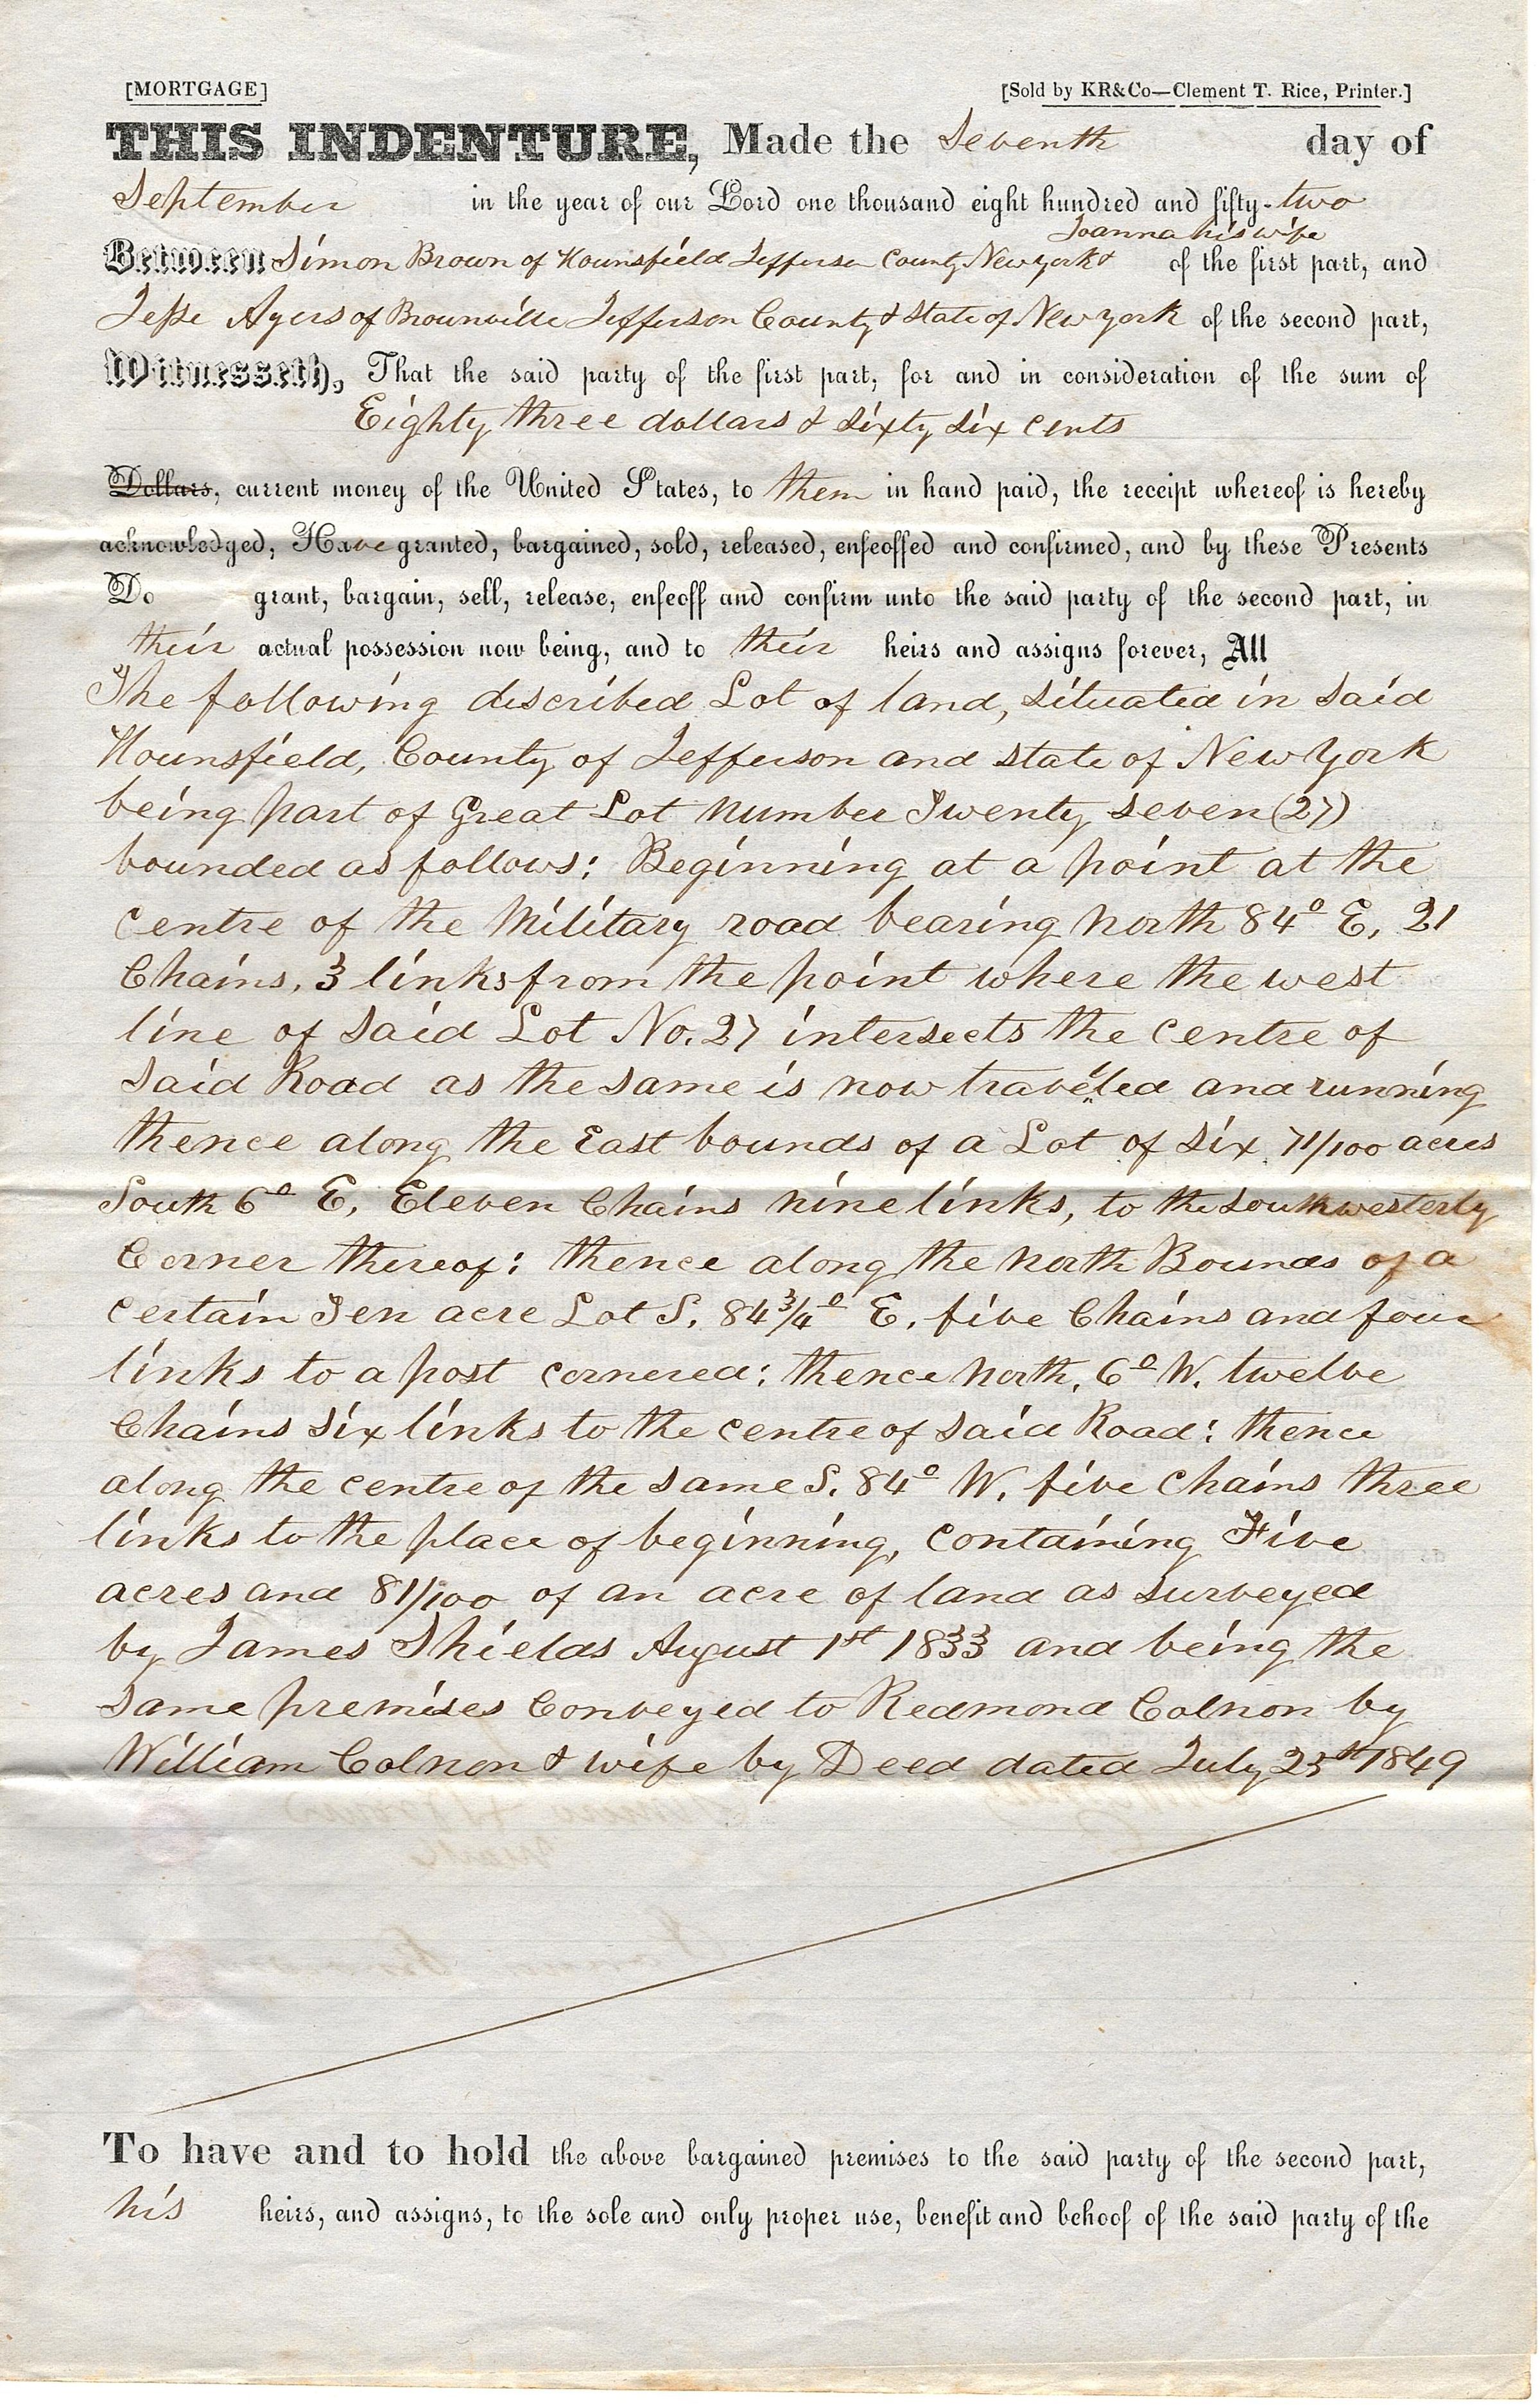 [MORTGAGE]
[Sold by KR&Co—Clement T. Rice, Printer.]
THIS INDENTURE, Made the Seventh day of
September in the year of our Lord one thousand eight hundred and fifty-two
Joanna his wife
Between Simon Brown of Hounsfield Jefferson County New York & of the first part, and
Jesse Ayers of Brownville Jefferson County & State of New York of the second part,
Witnesseth, That the said party of the first part, for and in consideration of the sum of
Eighty three dollars & sixty six cents
Dollars, current money of the United States, to them in hand paid, the receipt whereof is hereby
acknowledged, Have granted, bargained, sold, released, enfeoffed and confirmed, and by these Presents
Do grant, bargain, sell, release, enfeoff and confirm unto the said party of the second part, in
their actual possession now being, and to their heirs and assigns forever, All
The following described Lot of land, situated in said
Hounsfield, County of Jefferson and state of New York
being part of Great Lot number Twenty seven (27)
bounded as follows: Beginning at a point at the
centre of the Military road bearing North 84° E, 21
Chains, 3 links from the point where the west
line of said Lot No. 27 intersects the centre of
said Road as the same is now traveled and running
thence along the East bounds of a Lot of six 71/100 acres
South 6° E, Eleven Chains nine links, to the southwesterly
Corner thereof: thence along the north Bounds of a
certain Ten acre Lot S. 84 3/4° E. five Chains and four
links to a post cornered: thence North, 6° W. twelve
Chains six links to the centre of said Road: thence
along the centre of the same S. 84° W. five chains three
links to the place of beginning, containing Five
acres and 81/100 of an acre of land as surveyed
by James Shields August 1st 1833 and being the
same premises Conveyed to Redmond Colnon by
William Colnon & wife by Deed dated July 23d 1849
To have and to hold the above bargained premises to the said party of the second part,
his heirs, and assigns, to the sole and only proper use, benefit and behoof of the said party of the